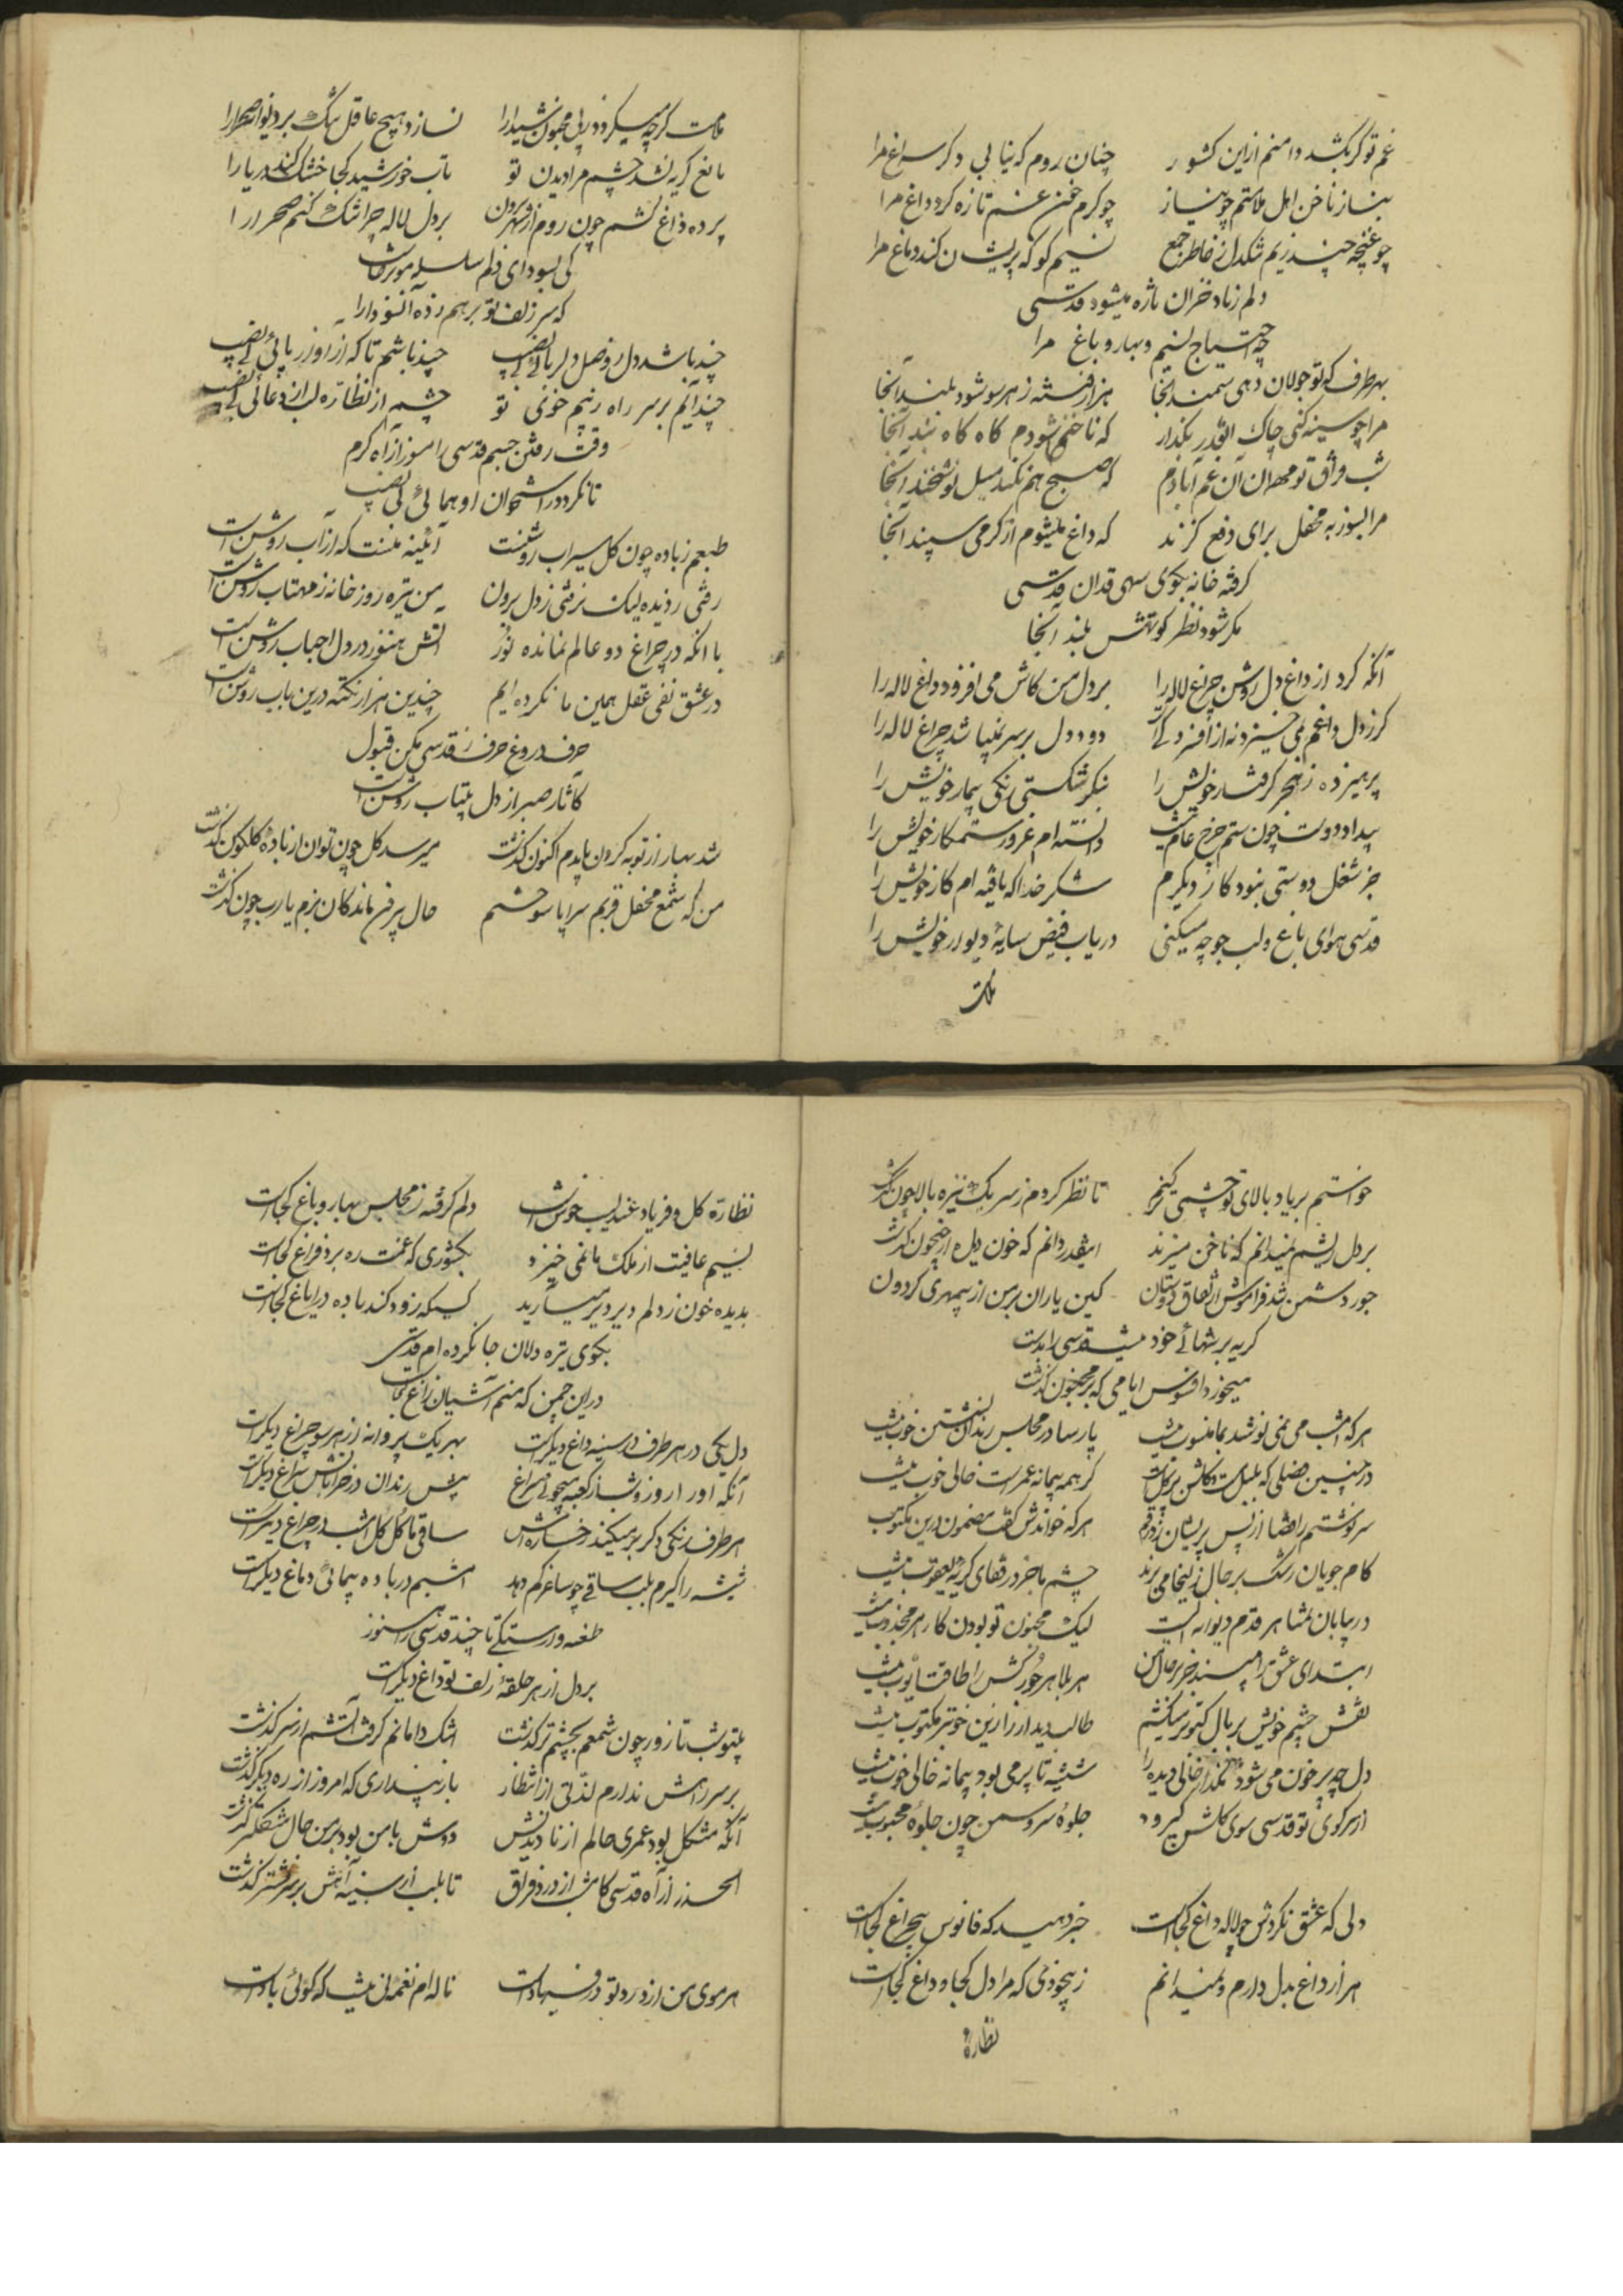 غم تو کر بکشد دامنم ازین کشور چنان روم که نیابی دکر سراغ مرا
بساز ناخن اهل ملامتم چو نیاز چو کرم ناخن غم تازه کرد داغ مرا
چو غنچه چند زیم تنکدل ز خاطر جمع نسیم کو که پریشان کند دماغ مرا
دلم زیاد خزان تازه میشود قدسی
چه احتیاج نسیم و بهار و باغ مرا
بهر طرف که تو جولان دهی سمند آنجا هزار فتنه ز هر سو شود بلند آنجا
مرا چو سینه کنی چاک اینقدر بکذار که ناخنم شودم کاه کاه بند آنجا
شب فراق تو مهمان آن غم آبادم که صبح هم نکند میل نوشخند آنجا
مرا بسوز به محفل برای دفع کزند که داغ میشوم از کرمی سپند آنجا
کرفته خانه بکوی سهی قدان قدسی
مکر شود نظر کوتهش بلند آنجا
آنکه کرد از داغ دل روشن چراغ لاله را بر دل من کاش می افزود داغ لاله را
کز دل داغم نمی خیزد نه از افسردکی دود دل بر سر نمیباشد چراغ لاله را
پرهیز ده ز هجر کرفتار خویش را بنکر شکستی رنکی بیمار خویش را
بیداد دوست چون ستم چرخ عام نیست دانسته ام غرور ستمکار خویش را
جز شغل دوستی نبود کار دیکرم شکر خدا که یافته ام کار خویش را
قدسی هوای باغ و لب جو چه میکنی دریاب فیض سایهٔ دیوار خویش را
ملامت
ملامت کرچه میکردند پی مجنون شیدا را نسازد هیچ عاقل سنک بر دیوانه صحرا را
مانع کریه نشد چشم مرا دیدن تو تاب خورشید کجا خشک کند دریا را
پرده داغ کشم چون روم از شهر برون بر دل لاله چرا تنک کنم صحرا را
کی بسودای دلم سلسله موئی برخاست
که سر زلف تو بر هم زده آن سودا را
چند باشد دل ز وصل دلربائی بی نصیب چند باشم تا که از آواز پائی بی نصیب
چند آیم بر سر راه و ز بیم خوی تو چشم از نظاره لب از دعائی بی نصیب
وقت رفتن جسم قدسی را مسوز از آه کرم
تا نکردد ز استخوان او همائی بی نصیب
طبعم ز باده چون کل سیراب روشنست آئینه منست که از آب روشن است
رفتی ز دیده لیک نرفتی ز دل برون من تیره روز خانه ز مهتاب روشن است
با آنکه در چراغ دو عالم نمانده نور آتش هنوز در دل احباب روشن است
در عشق نفی عقل همین ما نکرده ایم چندین هزار نکته درین باب روشن است
حرف دروغ حرف ز قدسی مکن قبول
کآثار صبر از دل بیتاب روشن است
شد بهار از توبه کردن بایدم اکنون کذشت میرسد کل چون توان از بادهٔ کلکون کذشت
من که شمع محفل قربم سراپا سوختم حال بیرون ماندکان بزم یارب چون کذشت
خواستم بر یاد بالای تو چشمی تر کنم تا نظر کردم ز سر یک نیزه بالا خون کذشت
بر دل ریشم نمیدانم که ناخن میزند اینقدر دانم که خون دیده از جیحون کذشت
جور دشمن شد فراموش از نفاق دوستان کین یاران بر من از بیمهری کردون کذشت
کریه بر شبهای خود میشد قدسی را بدست
میخورد افسوس ایامی که بر مجنون کذشت
هرکه امشب می نمی نوشد بما منسوب نیست پارسا در مجلس رندان نشستن خوب نیست
در چنین فصلی که بلبل مست و کلشن پر کلست کر همه پیمانه عمرست خالی خوب نیست
سرنوشتم را قضا از بس پریشان زد رقم هرکه خواندش کفت مضمون درین مکتوب نیست
کام جویان رشک بر حال زلیخا می برند چشم ما جز در قفای کریهٔ یعقوب نیست
در بیابان تمنا هر قدم دیوانه ایست لیک مجنون تو بودن کار هر مجذوب نیست
ابتدای عشق را مپسند جز بر حال من هر بلا هر خورکش را طاقت ایوب نیست
نقش چشم خویش بر بال کبوتر میکشم طالب دیدار را زین خوبتر مکتوب نیست
دل چه پر خون می شود مکذار خالی دیده را شیشه تا پر می بود پیمانه خالی خوب نیست
از سر کوی تو قدسی سوی کلشن کی رود جلوهٔ سرو سمن چون جلوهٔ محبوب نیست
دلی که عشق نکردش چو لاله داغ کجاست خبر دهید که فانوس بیچراغ کجاست
هزار داغ بدل دارم و نمیدانم ز بیخودی که مرا دل کجا و داغ کجاست
نظاره
نظارهٔ کل و فریاد عندلیب خوش است دلم کرفته ز مجلس بهار و باغ کجاست
نسیم عافیت از ملک ما نمی خیزد بکشوری که غمت ره برد فراغ کجاست
بدیده خون ز دلم دیر دیر میآید کسیکه زود کند باده در ایاغ کجاست
بکوی تیره دلان جا نکرده ام قدسی
در این چمن که منم آشیان زاغ کجاست
دل یکی در هر طرف در سینه داغ دیکرست بهر یک پروانه از هر سو چراغ دیکرست
آنکه او را روز و شب از کعبه میجوئی سراغ پیش رندان در خراباتش سراغ دیکرست
هر طرف رنکی دکر بر میکند رخساره اش ساقی ما کل کل امشب در چراغ دیکرست
شیشه را کیرم بلب ساقی چو ساغر کم دهد امشبم در باده پیمائی دماغ دیکرست
طعنه وارستکی تا چند قدسی را هنوز
بر دل از هر حلقهٔ زلف تو داغ دیکرست
بیتو شب تا روز چون شمعم بچشم تر کذشت اشک دامانم کرفت آتشم از سر کذشت
بر سر راهش ندارم لذتی از انتظار باز پنداری که امروز از ره دیکر کذشت
آنکه مشکل بود عمری حالم از نادیدنش دوش با من بود و بر من حال مشکلتر کذشت
الحذر از آه قدسی کامشب از درد فراق تا بلب از سینه آهش بر سر نشتر کذشت
هر موی من از درد تو در فریادست ناله ام نغمهٔ نی نیست که کوئی بادست